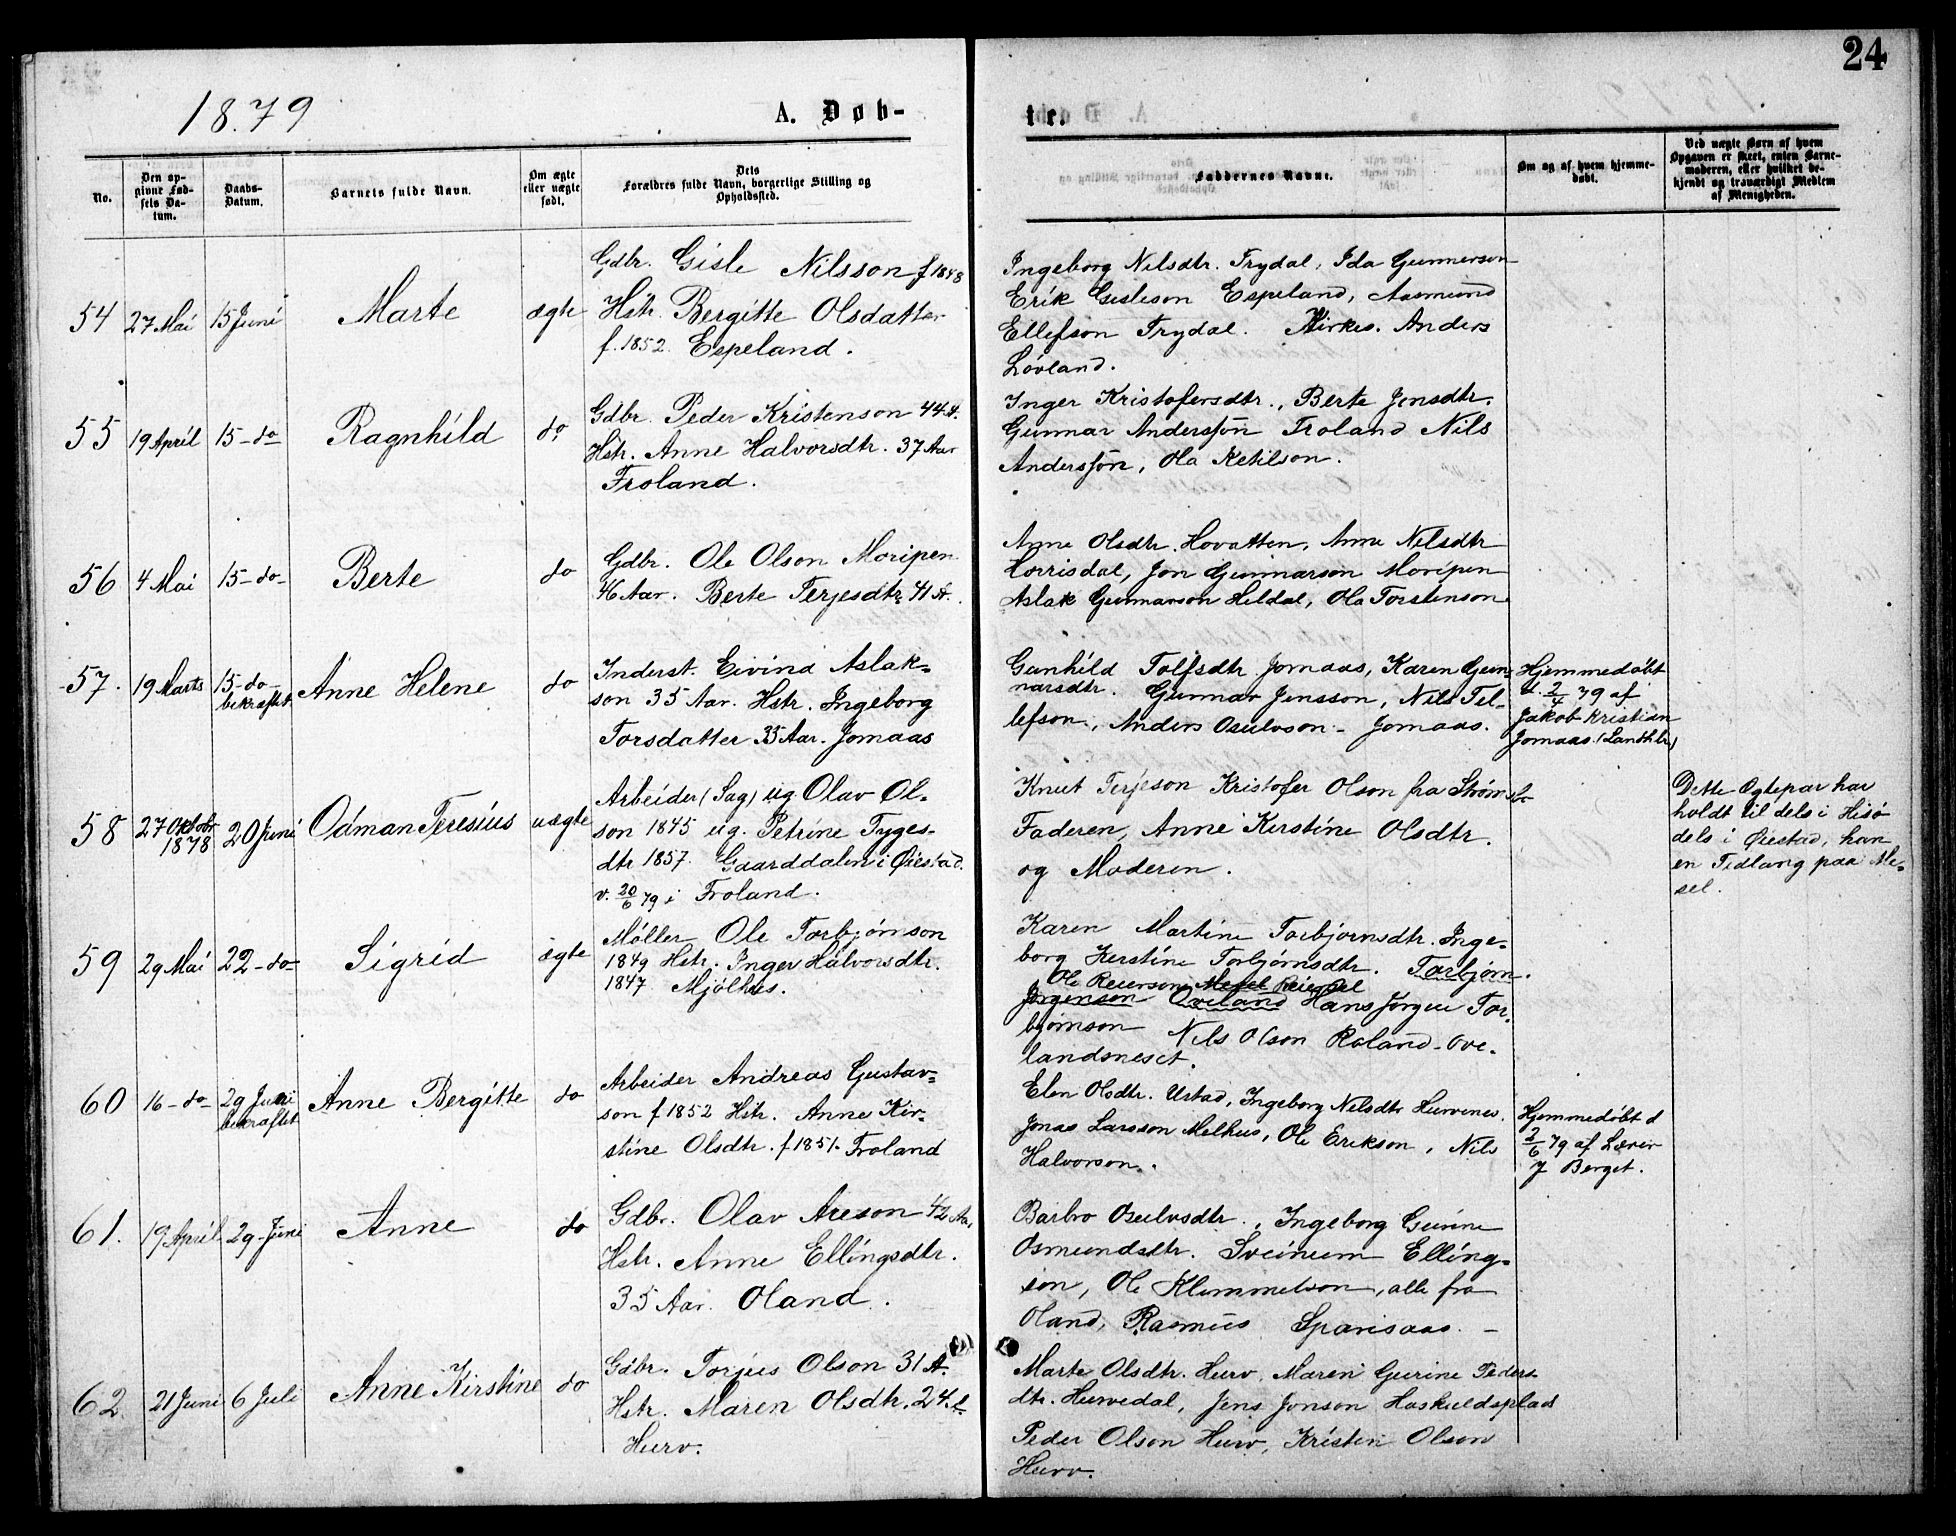 24
1879
A. Døb-
ter.
No.
Den op-
givne Fød-
sels Da-
tum.
Daabs-
Datum.
Barnets fulde Navn.
Om ægte
eller uægte
født.
Dets
Forældres fulde Navn, borgerlige Stilling og
Opholdssted.
Faddernes Navne.
Om og af hvem hjemme-
døbt.
Ved uægte Børn af hvem
Opgaven er skeet, enten Barne-
moderen, eller hvilket be-
kjendt og troværdigt Medlem
af Menigheden.
54 27 Mai 15 Juni Marte ægte
Gdbr. Gisle Nilsson f 1848
Hstr. Bergitte Olsdatter
f. 1852 Espeland.
Ingeborg Nilsdtr. Trydal, Ida Gunnerson
Erik Gisleson Espeland, Aasmund
Ellefson Trydal. Kirkes. Anders
Lövland.
55 19 April 15-do Ragnhild do
Gdbr. Peder Kristenson 44 A.
Hstr. Anne Halvorsdtr. 37 Aar
Froland.
Inger Kristofersdtr., Berte Jensdtr.
Gunnar Andersson Froland Nils
Andersson, Ola Ketilson.
56 4 Mai 15-do- Berte do
Gdbr. Ole Olson Moripen
46 Aar. Berte Terjesdtr 41 A.
Anne Olsdtr. Hovatten, Anne Nilsdtr
Lorrisdal, Jon Gunnarson Moripen
Aslak Gunnarson Heldal, Ola Torstenson
57. 19 Marts 15-do- bekræftet Anne Helene do
Inderst. Eivind Aslak-
son 35 Aar. Hstr. Ingeborg
Torsdatter 35 Aar. Jomaas
Gunhild Tolfsdtr Jomaas, Karen Gun-
narsdtr. Gunnar Jensson, Nils Tel-
lefson, Anders Osulvson - Jomaas.
Hjemmedøbt
d. 2/4 79 af
Jakob Kristian
Jomaas (Landhlr)
58 27 Oktobr 1878 20 Juni Odman Teresius uægte
Arbeider (Sag) ug. Olav Ol-
son 1845 ug. Petrine Tyges-
dtr 1857. Gaarddalen i Øiestad.
v. 20/6 79 i Froland.
Knut Terjeson Kristofer Olson fra Strömsbo
Faderen, Anne Kirstine Olsdtr.
og Moderen.
Dette Ægtepar har
holdt til dels i Hisø
dels i Øiestad, han
en Tidlang paa Me-
sel.
59 29 Mai 22-do- Sigrid ægte
Møller Ole Torbjønson
1849 Hstr. Inger Halvorsdtr.
1847 Mjölhus.
Karen Martine Torbjornsdtr. Inge-
borg Kirstine Torbjörnsdtr. Torbjørn
Ole Reierson Mesel
Jørgenson Oveland Hans Jørgen Tor-
bjørnson Nils Olson Roland-Ove-
landsneset.
60 16-do- 29 Juni bekræftet Anne Bergitte do
Arbeider Andreas Gustav-
son f 1852 Hstr. Anne Kir-
stine Olsdtr. f 1851. Froland
Elen Olsdtr. Ustad, Ingeborg Nilsdtr Hurvenes.
Jonas Larsson Melhus, Ole Erikson, Nils
Halvorson.
Hjemmedöbt d
2/6 79 af Lærer
J Berget.
61. 19 April 29-Juni Anne do
Gdbr. Olav Areson 42 Aa,
Hstr. Anne Ellingsdtr.
35 Aar. Oland.
Barbro Osulvsdtr., Ingeborg Gurine
Osmundsdtr. Sveinum Elling-
son, Ole Klemmetson, alle fra
Oland, Rasmus Sparisaas. -
62 21 Juni 6 Juli Anne Kirstine do
Gdbr. Torjus Olson 31 A.
Hstr. Maren Olsdtr. 24.A.
Hurv.
Marte Olsdtr. Hurv, Maren Gurine Peders
dtr. Hurvedal, Jens Jonson Haskuldsplads
Peder Olson Hurv, Kristen Olson
Hurv.